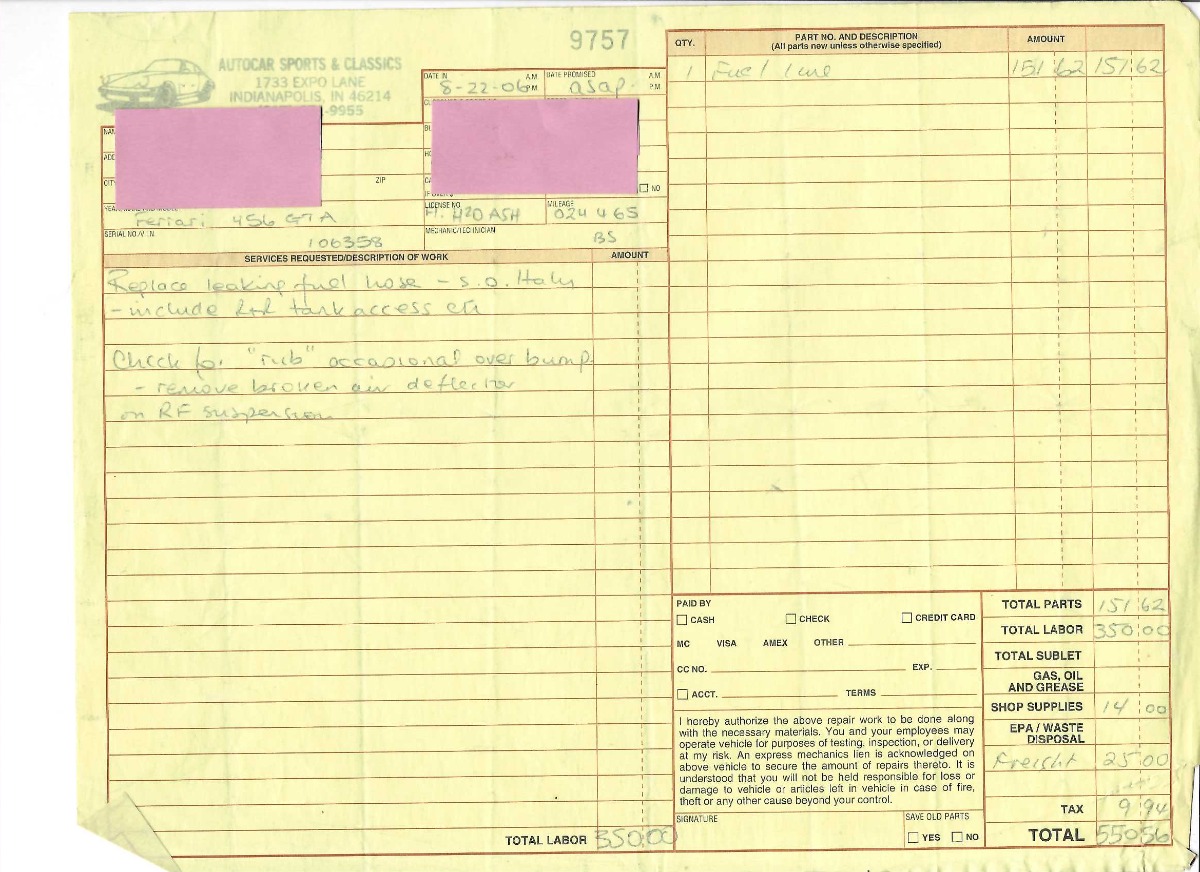 9757
AUTOCAR SPORTS & CLASSICS
1733 EXPO LANE
INDIANAPOLIS, IN 46214
-9955
DATE IN A.M. P.M.
8-22-06
DATE PROMISED A.M. P.M.
asap.
ZIP
NO
Ferrari 456 GTA
LICENSE NO.
H20 ASH
MILEAGE
024465
SERIAL NO./V.I.N.
106358
MECHANIC/TECHNICIAN
BS
SERVICES REQUESTED/DESCRIPTION OF WORK AMOUNT
Replace leaking fuel hose - s.o. Italy
- include R+R tank access etc
Check for "rub" occasional over bump
- remove broken air deflector
on RF suspension
TOTAL LABOR 350.00
QTY. PART NO. AND DESCRIPTION AMOUNT
(All parts new unless otherwise specified)
1 Fuel line 151 62 151 62
PAID BY
CASH CHECK CREDIT CARD
MC VISA AMEX OTHER
CC NO. EXP.
ACCT. TERMS
I hereby authorize the above repair work to be done along
with the necessary materials. You and your employees may
operate vehicle for purposes of testing, inspection, or delivery
at my risk. An express mechanics lien is acknowledged on
above vehicle to secure the amount of repairs thereto. It is
understood that you will not be held responsible for loss or
damage to vehicle or articles left in vehicle in case of fire,
theft or any other cause beyond your control.
SIGNATURE
SAVE OLD PARTS
YES NO
TOTAL PARTS 151 62
TOTAL LABOR 350 00
TOTAL SUBLET
GAS, OIL
AND GREASE
SHOP SUPPLIES 14 00
EPA / WASTE
DISPOSAL
Freight 25 00
TAX 9 94
TOTAL 550 56